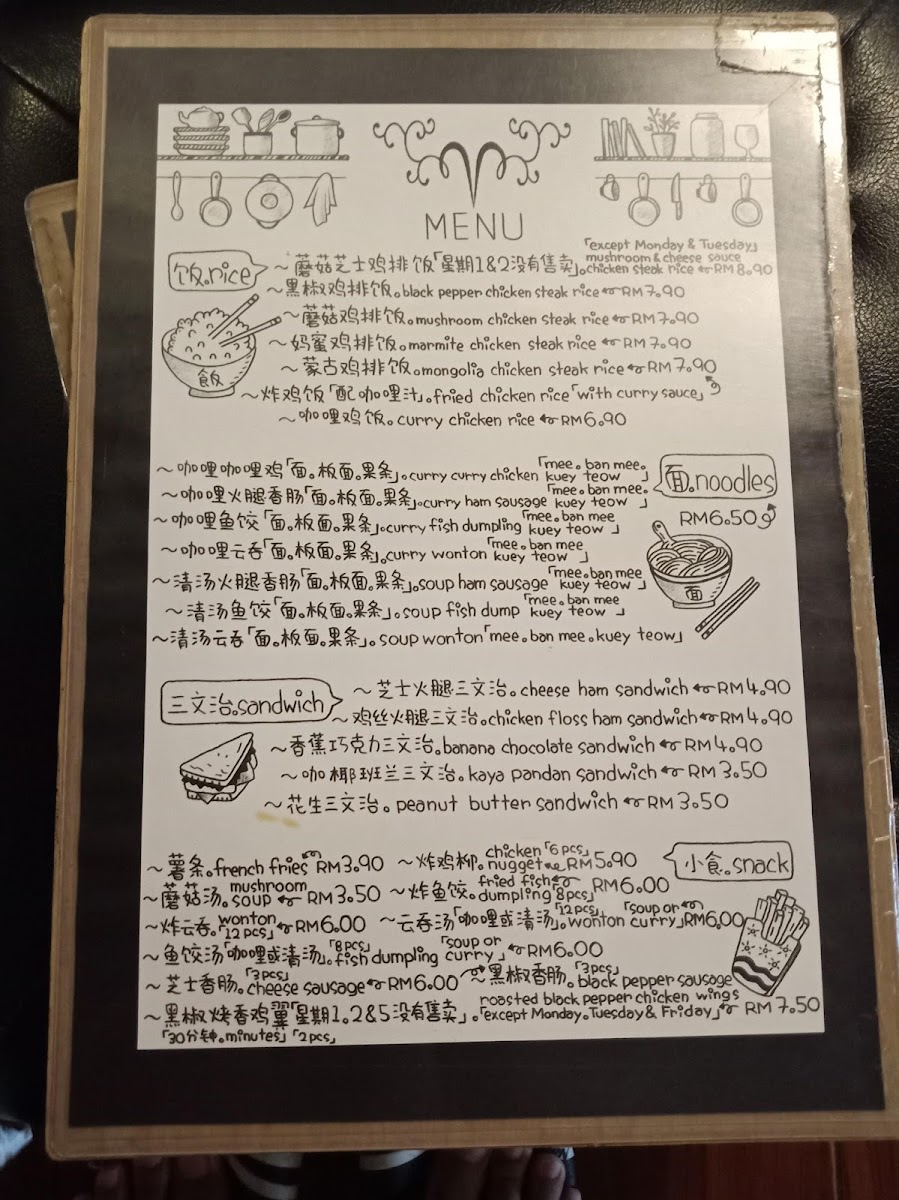 MENU
饭。rice
～蘑菇芝士鸡排饭「星期1&2没有售卖」。「except Monday & Tuesday」 mushroom & cheese sauce chicken steak rice RM8.90
～黑椒鸡排饭。black pepper chicken steak rice RM7.90
～蘑菇鸡排饭。mushroom chicken steak rice RM7.90
～妈蜜鸡排饭。marmite chicken steak rice RM7.90
～蒙古鸡排饭。mongolia chicken steak rice RM7.90
～炸鸡饭「配咖哩汁」。fried chicken rice「with curry sauce」
～咖哩鸡饭。curry chicken rice RM6.90
饭
面。noodles
RM6.50
～咖哩咖哩鸡「面。板面。果条」。curry curry chicken「mee。ban mee。kuey teow」
～咖哩火腿香肠「面。板面。果条」。curry ham sausage「mee。ban mee。kuey teow」
～咖哩鱼饺「面。板面。果条」。curry fish dumpling「mee。ban mee kuey teow」
～咖哩云吞「面。板面。果条」。curry wonton「mee。ban mee kuey teow」
～清汤火腿香肠「面。板面。果条」。soup ham sausage「mee。ban mee kuey teow」
～清汤鱼饺「面。板面。果条」。soup fish dump「mee。ban mee kuey teow」
～清汤云吞「面。板面。果条」。soup wonton「mee。ban mee。kuey teow」
面
三文治。sandwich
～芝士火腿三文治。cheese ham sandwich RM4.90
～鸡丝火腿三文治。chicken floss ham sandwich RM4.90
～香蕉巧克力三文治。banana chocolate sandwich RM4.90
～咖椰班兰三文治。kaya pandan sandwich RM3.50
～花生三文治。peanut butter sandwich RM3.50
小食。snack
～薯条。french fries RM3.90 ～炸鸡柳。chicken「6pcs」nugget RM5.90
～蘑菇汤。mushroom soup RM3.50 ～炸鱼饺。fried fish dumpling「8pcs」 RM6.00
～炸云吞。wonton「12pcs」RM6.00 ～云吞汤「咖哩或清汤」。「12pcs」wonton「soup or curry」RM6.00
～鱼饺汤「咖哩或清汤」。「8pcs」fish dumpling「soup or curry」RM6.00
～芝士香肠。「3pcs」cheese sausage RM6.00 ～黑椒香肠。「3pcs」black pepper sausage
～黑椒烤香鸡翼「星期1。2&5没有售卖」。roasted black pepper chicken wings「except Monday。Tuesday & Friday」RM7.50
「30分钟。minutes」「2pcs」